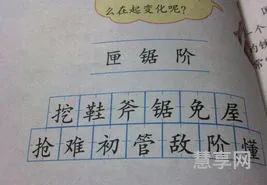 么在起变化呢？
匣锯阶
挖鞋斧锯免屋
抢难初管敌阶懂
慧享网